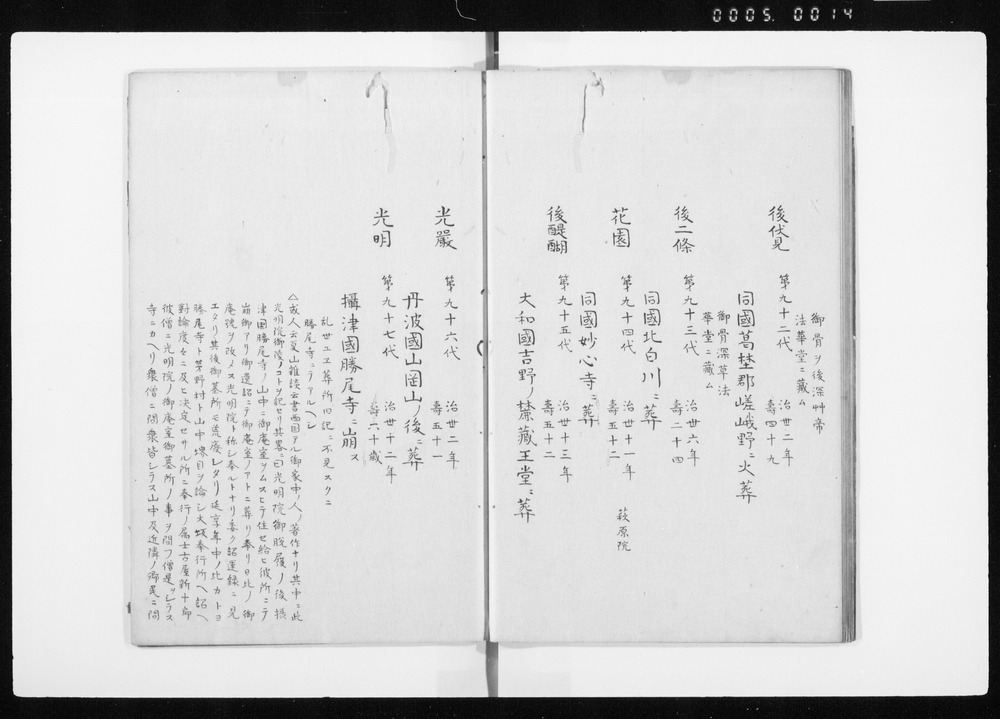 0005.0014
御骨ヲ後深艸帝
法華堂ニ藏ム
後伏見　第九十二代　治世二年
壽四十九
同國葛埜郡嵯峨野ニ火葬
御骨深草法
華堂ニ藏ム
後二條　第九十三代　治世六年
壽二十四
同國北白川ニ葬
花園　第九十四代　治世十一年　萩原院
壽五十二
同國妙心寺ニ葬
後醍醐　第九十五代　治世十三年
壽五十二
大和國吉野ノ藏王堂ニ葬
光嚴　第九十六代　治世二年
壽五十一
丹波國山国山ノ後ニ葬
光明　第九十七代　治世十二年
壽六十歳
攝津國勝尾寺ニ崩ス
乱世ユヱ葬所旧記ニ不見スクニ
勝尾寺ニテアルヘシ
△或人云夏山雜談云書西国アル御家中ノ人ノ著作ナリ其中ニ此
光明院御陵コトヲ記セリ其畧ニ曰光明院御脱履ノ後摂
津國勝尾寺ノ山中ニ御庵室ヲムスヒテ住セ給ヒ彼所ニテ
崩御アリ御遺詔ニテ御庵室ノアトニ葬リ奉リ日比ノ御
庵號ヲ改メス光明院ト称シ奉ルトナリ委ク詔運録ニ見
エタリ其後御墓所モ荒廢シタリ延享年中ノ比カトヨ
勝尾寺ト茅野村ト山中堺目ヲ論シ大坂奉行所ヘ訟ヘ
對論度々ニ及ヒ決定セサル所ニ奉行ノ属士古屋新十郎
彼僧ニ光明院ノ御庵室御墓所ノ事ヲ問フ僧是ヲシラス
寺ニカヘリ衆僧ニ問衆皆シラス山中及近隣ノ郷民ニ問